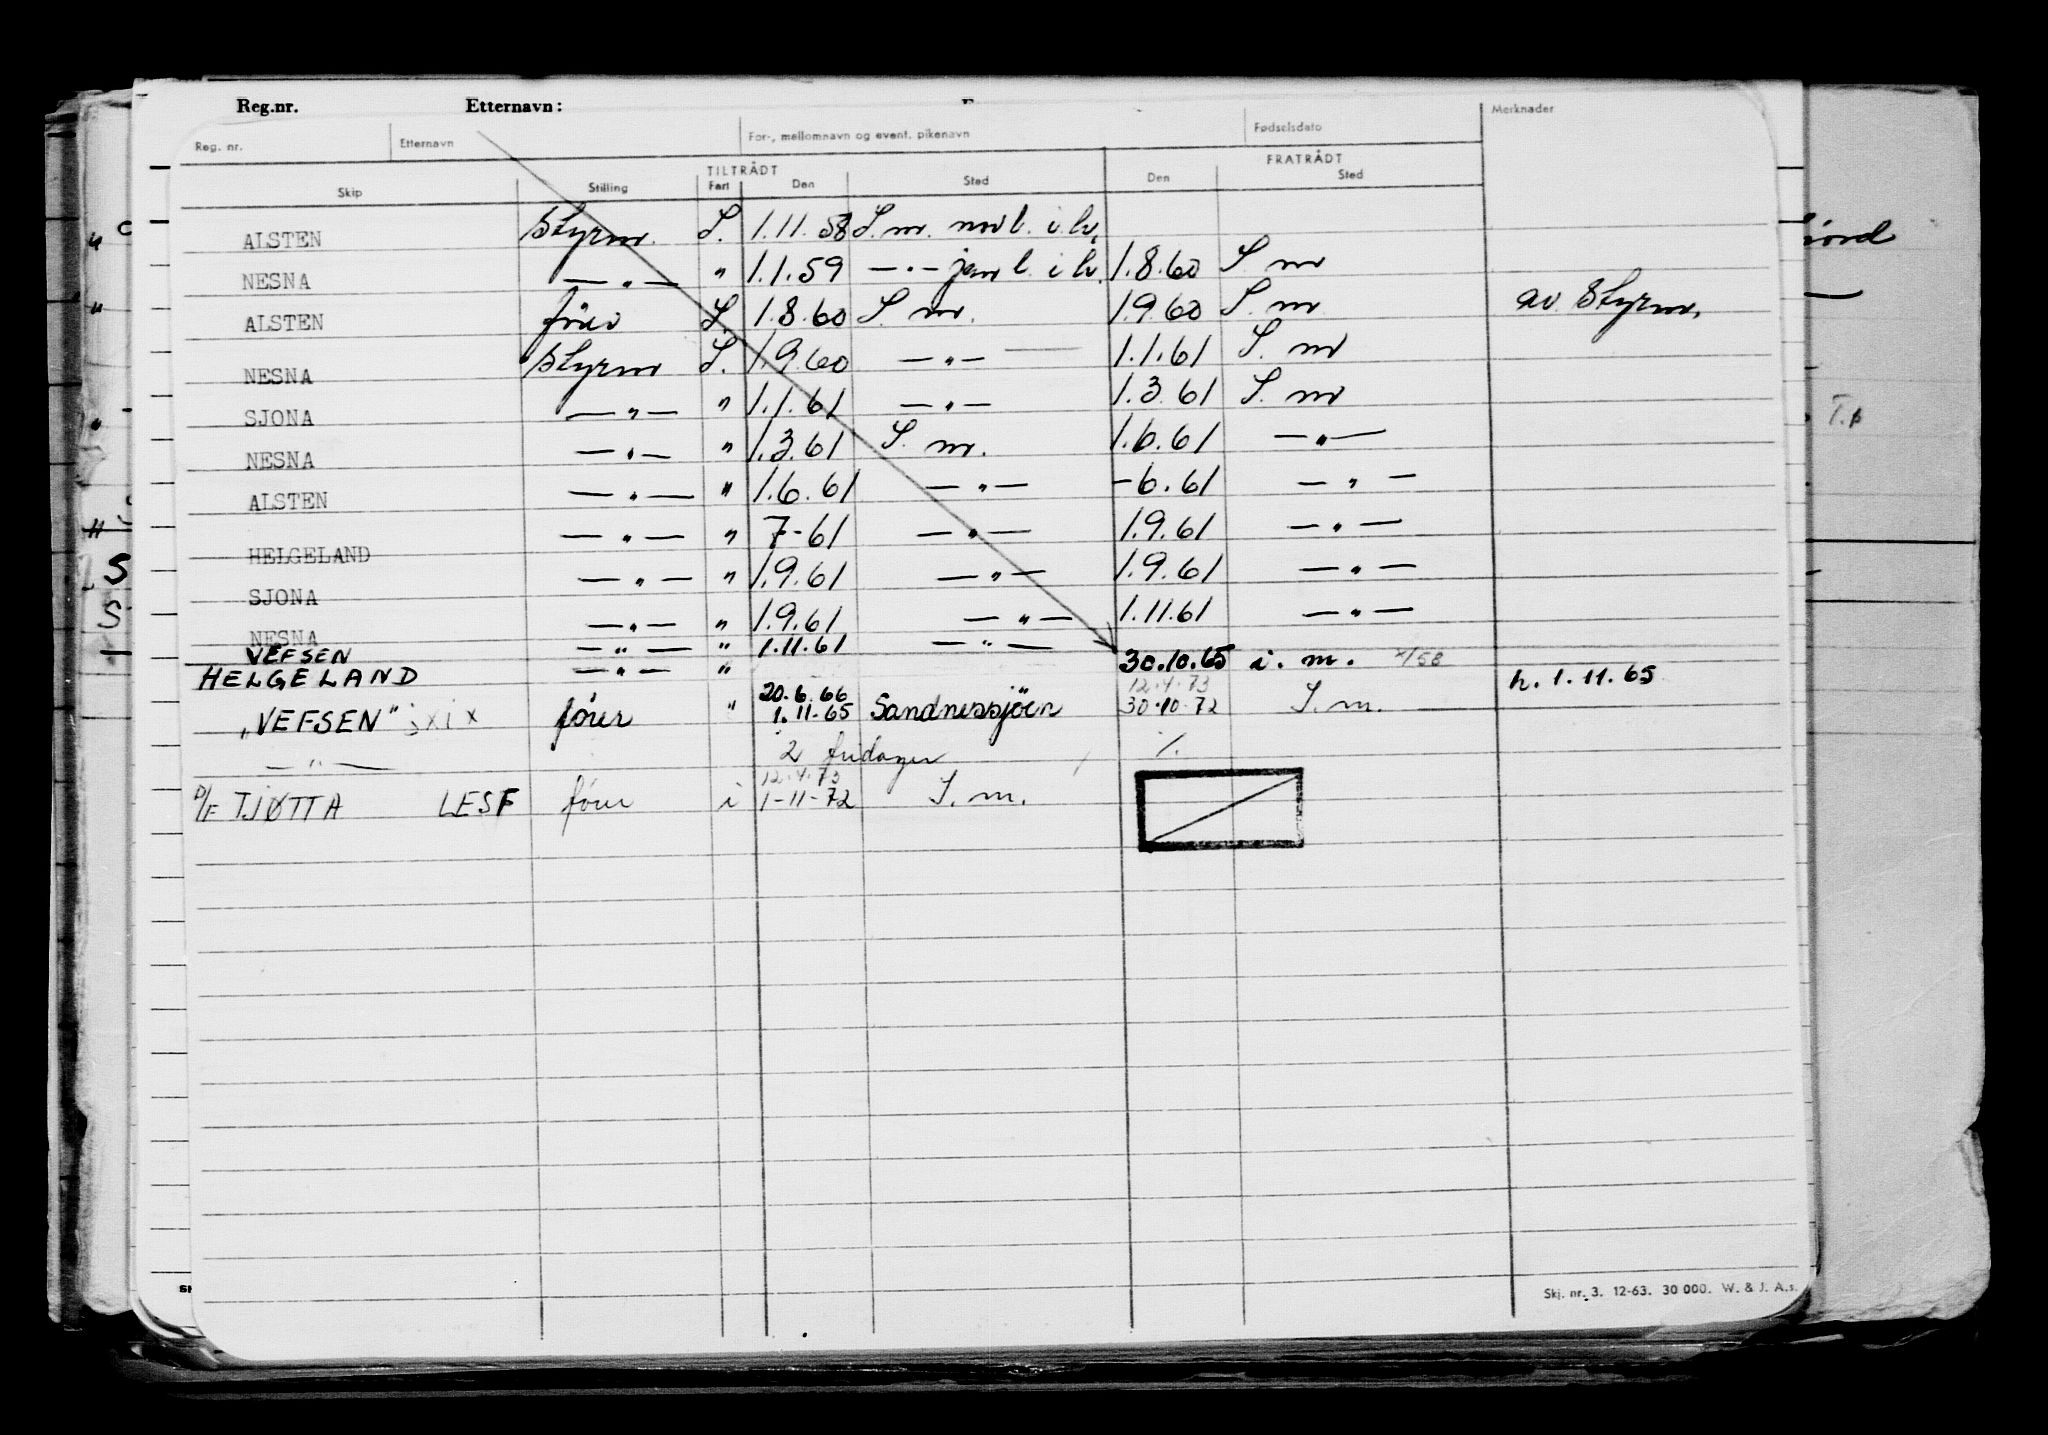 Reg.nr. Etternavn:
Reg. nr. Etternavn For-, mellomnavn og event. pikenavn Fødselsdato Merknader
TILTRÅDT FRATRÅDT
Skip Stilling Fart Den Sted Den Sted
ALSTEN Styrm. S. 1.11.58 S.m. novb. i lv.
NESNA — " — " 1.1.59 — " — janb. i lv. 1.8.60 S. m
ALSTEN fører S. 1.8.60 S. m. 1.9.60 S. m av Styrm.
NESNA Styrm S. 1.9.60 — " — 1.1.61 S. m
SJONA — " — " 1.1.61 — " — 1.3.61 S. m
NESNA — " — " 1.3.61 S. m. 1.6.61 — " —
ALSTEN — " — " 1.6.61 — " — -6.61 — " —
HELGELAND — " — " 7-61 — " — 1.9.61 — " —
SJONA — " — " 1.9.61 — " — 1.9.61 — " —
NESNA — " — " 1.9.61 — " — 1.11.61 — " —
VEFSEN — " — " 1.11.61 — " —
HELGELAND — " — " 30.10.65 i. m. x/58
20.6.66 12.4.73 h. 1.11.65
"VEFSEN" fører " 1.11.65 Sandnessjöen 30.10.72 S. m.
— " — 2 fridager %
12.4.73
D/F TJØTTA LESF fører i 1-11-72 S. m.
Skj. nr. 3. 12-63. 30 000. W. & J. A.s.